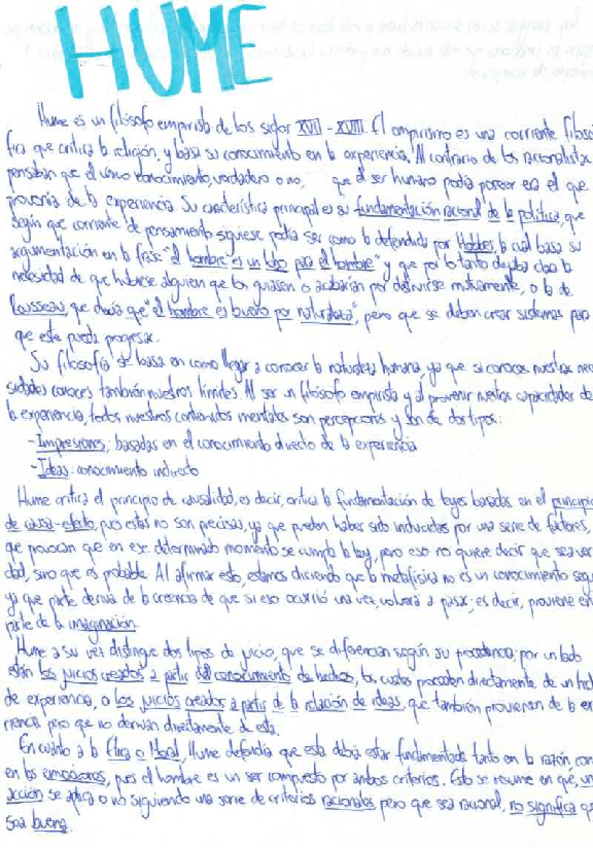 HUME
Hume es un filósofo empirista de los siglos XVII - XVIII. El empirismo es una corriente filosó
fica que critica la religión, y basa su conocimiento en la experiencia. Al contrario de los racionalistas
pensaban que el único conocimiento, verdadero o no, que el ser humano podía poseer era el que
provenía de la experiencia. Su característica principal es su fundamentación racional de la política, que
según que corriente de pensamiento siguiese podía ser como la defendida por Hobbes, la cual basa su
argumentación en la frase: "el hombre es un lobo para el hombre" y que por lo tanto dejaba clara la
necesidad de que hubiese alguien que los guiasen o acabarían por destruirse mutuamente, o la de
Rousseau, que decía que "el hombre es bueno por naturaleza", pero que se deben crear sistemas para
que este pueda progresar.
Su filosofía se basa en como llegar a conocer la naturaleza humana, ya que si conoces nuestras nece
sidades conoces también nuestros límites. Al ser un filósofo empirista y al provenir nuestras capacidades de
la experiencia, todos nuestros contenidos mentales son percepciones y son de dos tipos:
- Impresiones: basadas en el conocimiento directo de la experiencia
- Ideas: conocimiento indirecto
Hume critica el principio de causalidad, es decir, critica la fundamentación de leyes basadas en el principio
de causa-efecto, pues estas no son precisas, ya que pueden haber sido inducidas por una serie de factores,
que provocan que en ese determinado momento se cumpla la ley, pero eso no quiere decir que sea ver
dad, sino que es probable. Al afirmar esto, estamos diciendo que la metafísica no es un conocimiento segu
ya que parte deriva de la creencia de que si eso ocurrió una vez, volverá a pasar; es decir, proviene en
parte de la imaginación.
Hume a su vez distingue dos tipos de juicio, que se diferencian según su procedencia; por un lado
están los juicios creados a partir del conocimiento de hechos, los cuales proceden directamente de un hecho
de experiencia, o los juicios creados a partir de la relación de ideas, que también provienen de la expe
riencia pero que no derivan directamente de esta.
En cuanto a la Ética o Moral, Hume defendía que esta debía estar fundamentada tanto en la razón, como
en las emociones, pues el hombre es un ser compuesto por ambos criterios. Esto se resume en que, una
acción se aplica o no siguiendo una serie de criterios racionales, pero que sea racional, no significa que
sea buena.